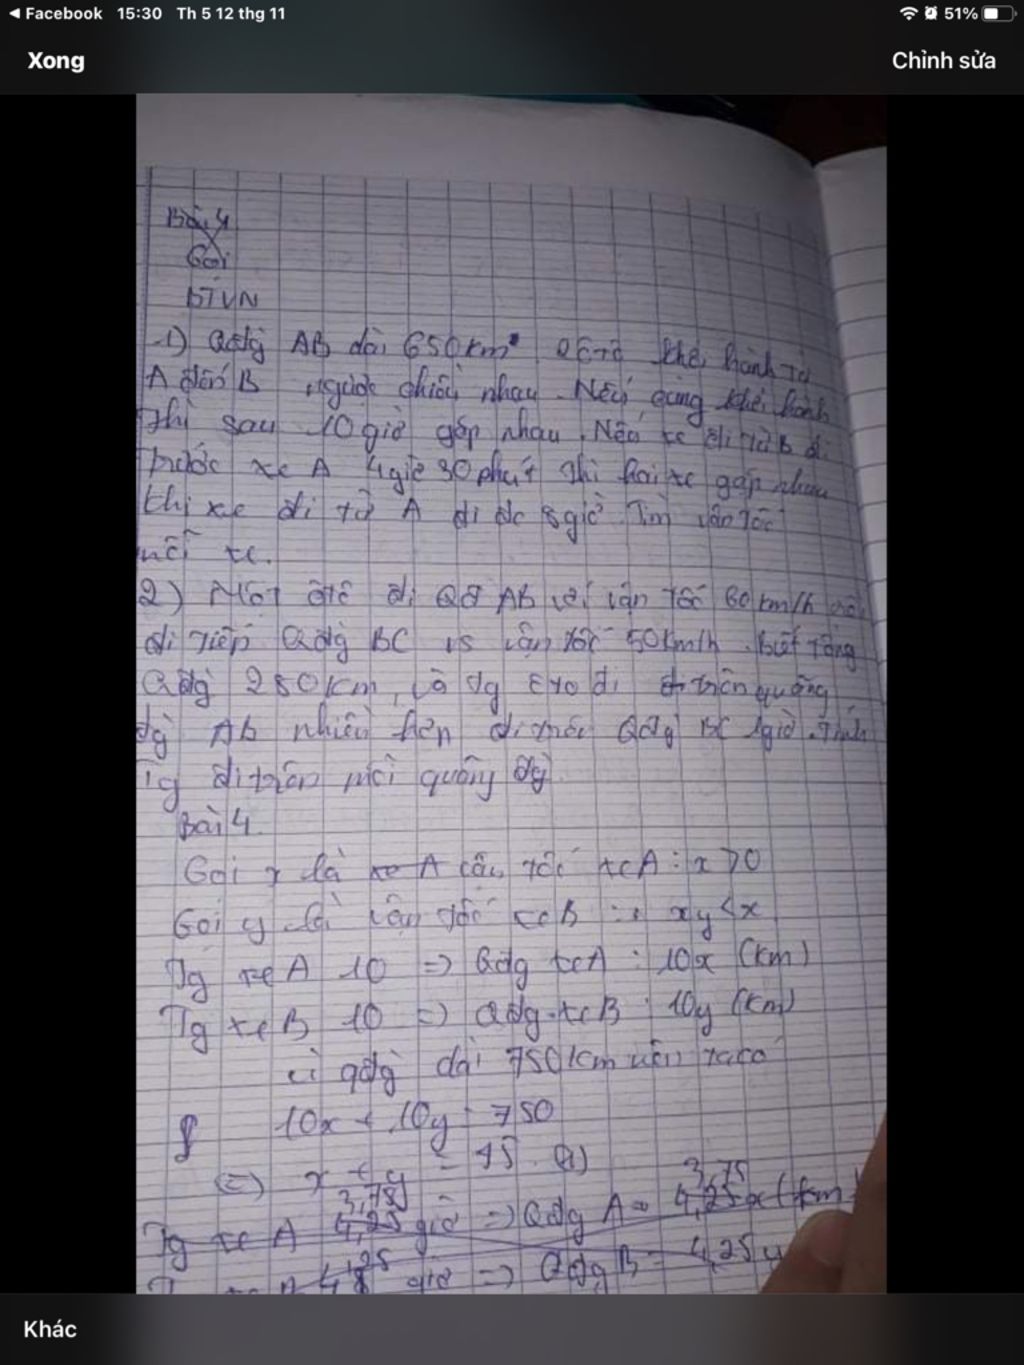 Facebook 15:30 Th 5 12 thg 11 51%
Xong Chỉnh sửa
Bài 4
Gọi
BTVN
1) Qđg AB dài 650km 2 ô tô khởi hành từ
A đến B ngược chiều nhau. Nếu cùng khởi hành
thì sau 10 giờ gặp nhau. Nếu xe đi từ B đi
trước xe A 4 giờ 30 phút thì hai xe gặp nhau
khi xe đi từ A đi đc 8 giờ. Tìm vận tốc
mỗi xe.
2) Một ôtô đi QĐ AB với vận tốc 60 km/h rồi
đi tiếp Qđg BC vs vận tốc 50km/h. biết rằng
Qđg 280km, và tg đi trên quãng
đg AB nhiều hơn đi trên Qđg BC 1giờ. Tính
Tg đi trên mỗi quãng đg
Bài 4
Gọi x là xe A vận tốc xe A : x > 0
Gọi y là vận tốc xe B y < x
Tg xe A 10 => Qđg xe A : 10x (km)
Tg xe B 10 => Qđg xe B : 10y (km)
vì qđg dài 750km nên ta có
10x + 10y = 750
<=> x + y = 75 (1)
3,75 3,75
Tg xe A 4,25 giờ => Qđg A = 4,25x (km)
4,25 giờ => Qđg B = 4,25y
Khác